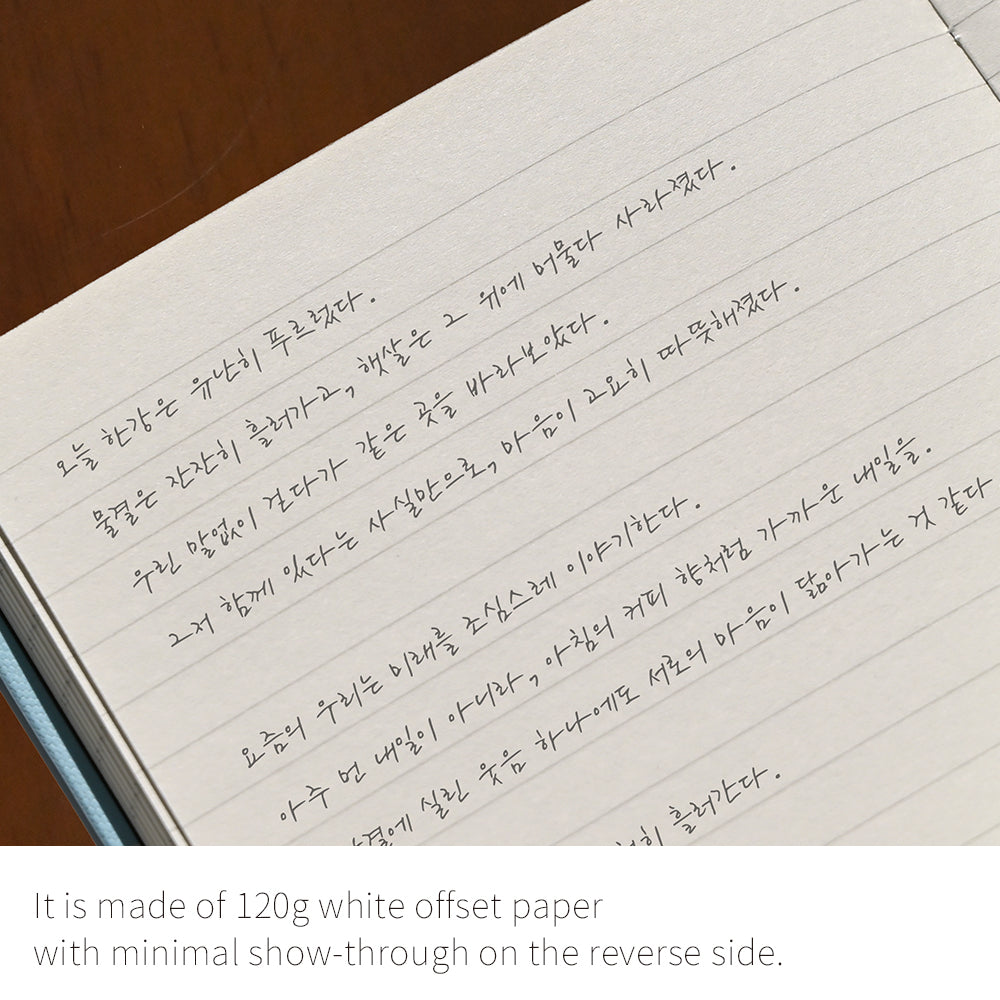 오늘 한강은 유난히 푸르렀다.
물결은 잔잔히 흘러가고, 햇살은 그 위에 머물다 사라졌다.
우린 말없이 걷다가 같은 곳을 바라보았다.
그저 함께 있다는 사실만으로, 마음이 고요히 따뜻해졌다.
요즘의 우리는 미래를 조심스레 이야기한다.
아주 먼 내일이 아니라, 아침의 커피 향처럼 가까운 내일을.
실린 웃음 하나에도 서로의 마음이 닮아가는 것 같다
흘러간다.
It is made of 120g white offset paper
with minimal show-through on the reverse side.